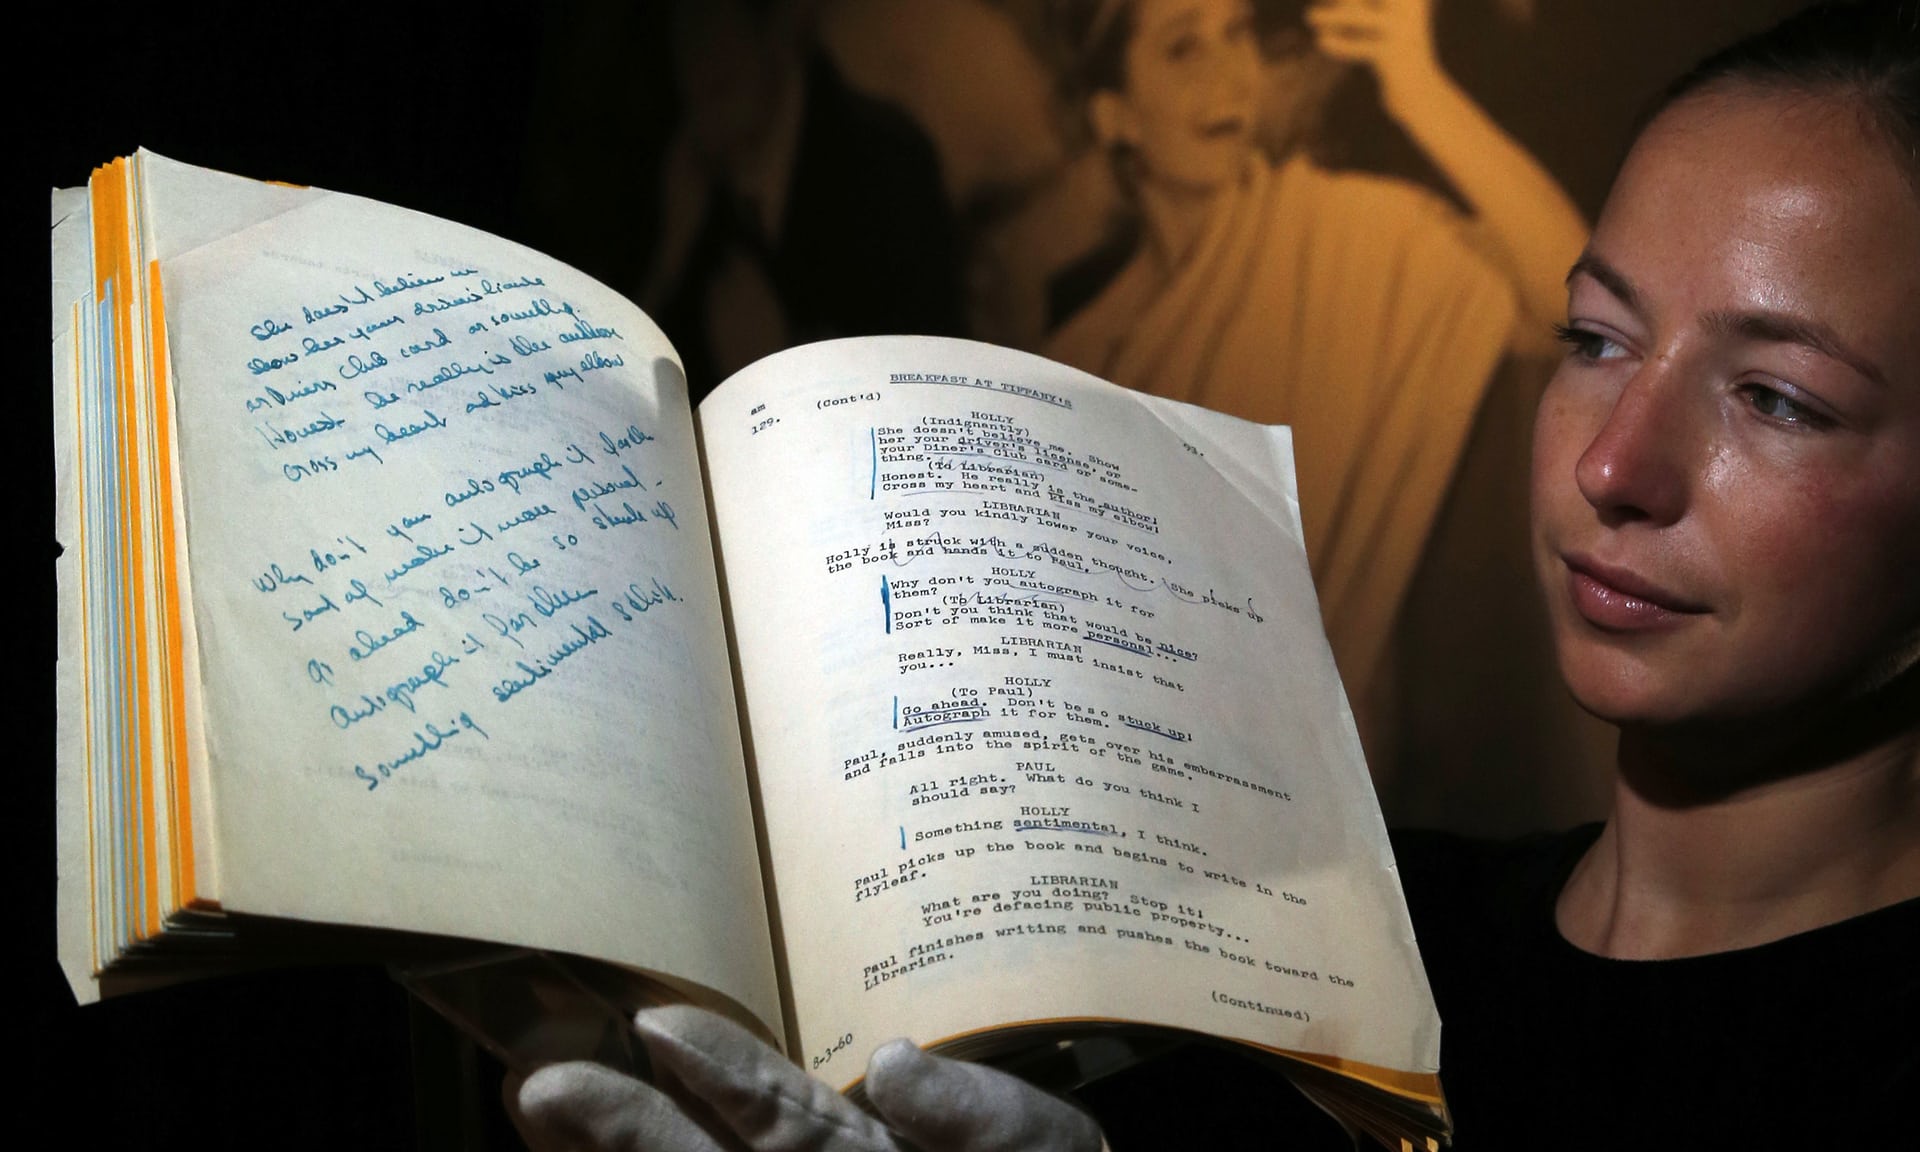 she doesn't believe me
show her your driver's license
or Diners Club card or something.
Honest. he really is the author
cross my heart and kiss my elbow
Why don't you autograph it for the
sort of make it more personal -
go ahead don't be so stuck up
Autograph it for them
Something sentimental
BREAKFAST AT TIFFANY'S
am
129.
(Cont'd)
93.
HOLLY
(Indignantly)
She doesn't believe me. Show
her your driver's license, or
your Diner's Club card or some-
thing.
(To Librarian)
Honest. He really is the author!
Cross my heart and kiss my elbow!
LIBRARIAN
Would you kindly lower your voice,
Miss?
Holly is struck with a sudden thought. She picks up
the book and hands it to Paul.
HOLLY
Why don't you autograph it for
them?
(To Librarian)
Don't you think that would be nice?
Sort of make it more personal...
LIBRARIAN
Really, Miss, I must insist that
you...
HOLLY
(To Paul)
Go ahead. Don't be so stuck up!
Autograph it for them.
Paul, suddenly amused, gets over his embarrassment
and falls into the spirit of the game.
PAUL
All right. What do you think I
should say?
HOLLY
Something sentimental, I think.
Paul picks up the book and begins to write in the
flyleaf.
LIBRARIAN
What are you doing? Stop it!
You're defacing public property...
Paul finishes writing and pushes the book toward the
Librarian.
(Continued)
8-3-60